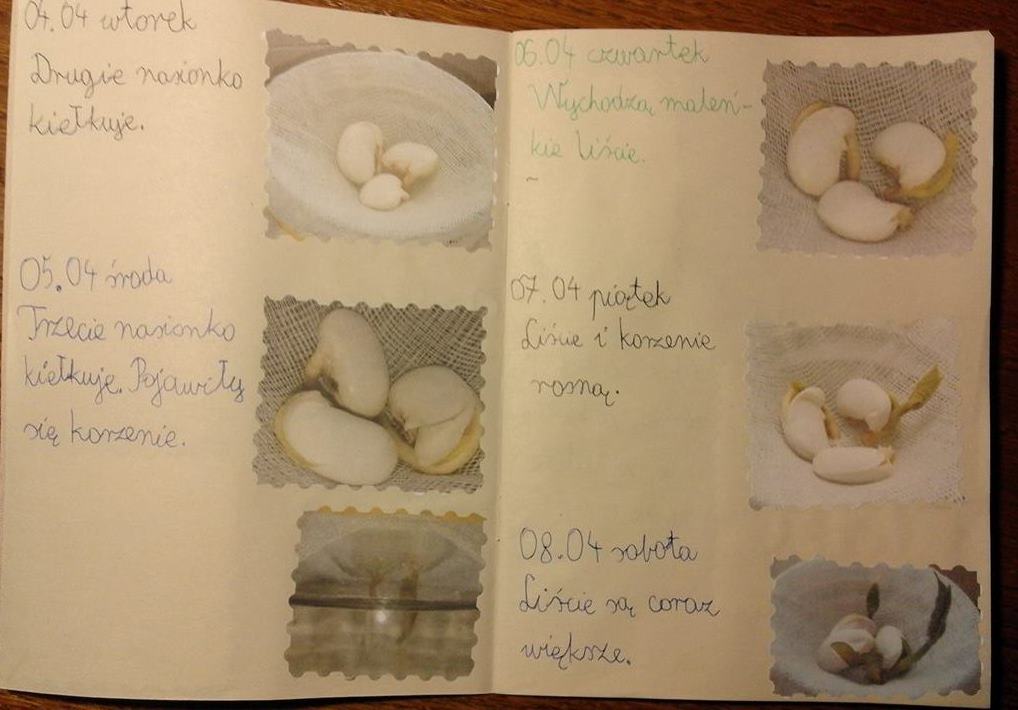 04.04 wtorek
Drugie nasionko
kiełkuje.
05.04 środa
Trzecie nasionko
kiełkuje. Pojawiły
się korzenie.
06.04 czwartek
Wychodzą maleń-
kie liście.
07.04 piątek
Liście i korzenie
rosną.
08.04 sobota
Liście są coraz
większe.